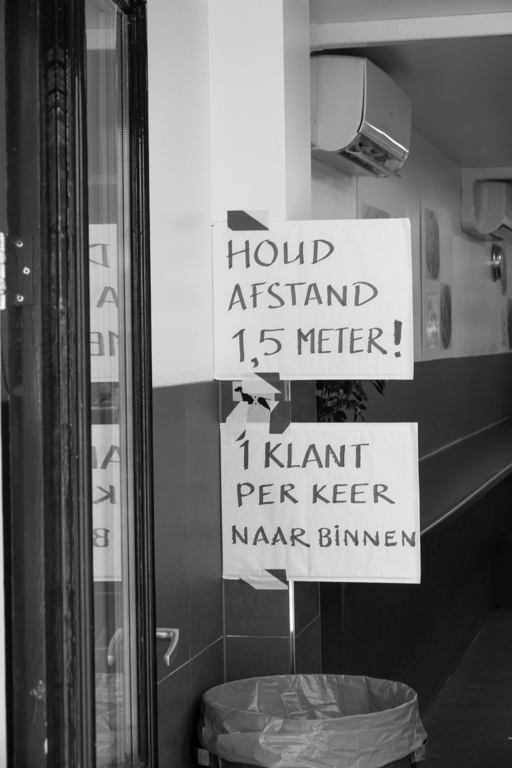 HOUD
AFSTAND
1,5 METER!
1 KLANT
PER KEER
NAAR BINNEN